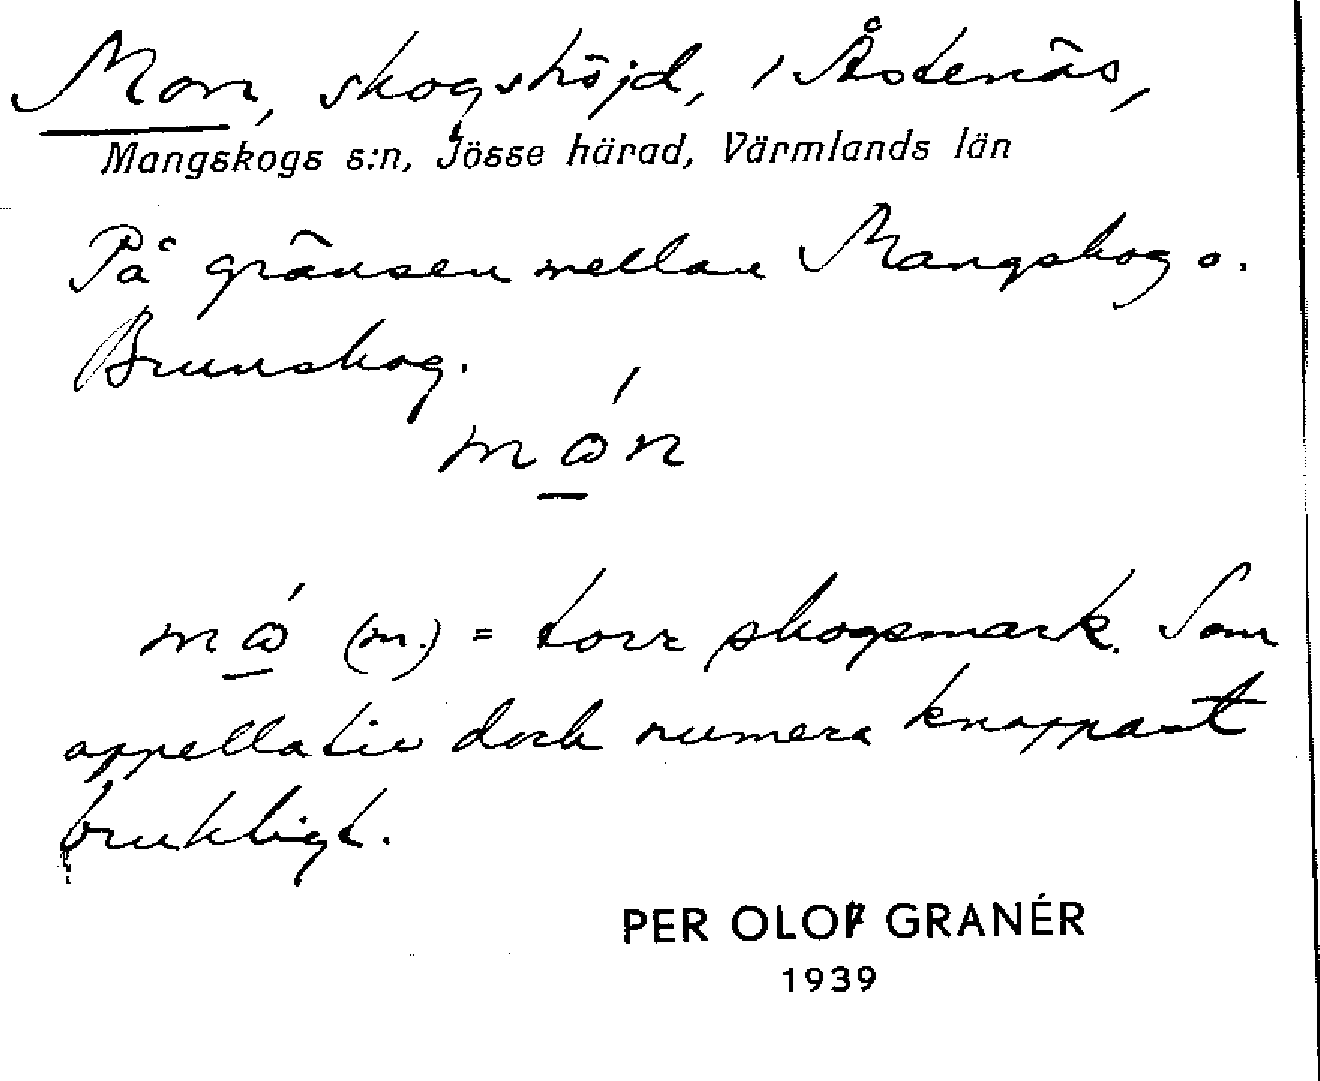 Mon, skogshöjd, i Åstenäs,
Mangskogs s:n, Jösse härad, Värmlands län
På gränsen mellan Mangskog o.
Brunskog.
mɷ́n
mɷ́ (m.) = torr skogsmark. Som
appellativ dock numera knappast
brukligt.
PER OLOF GRANÉR
1939